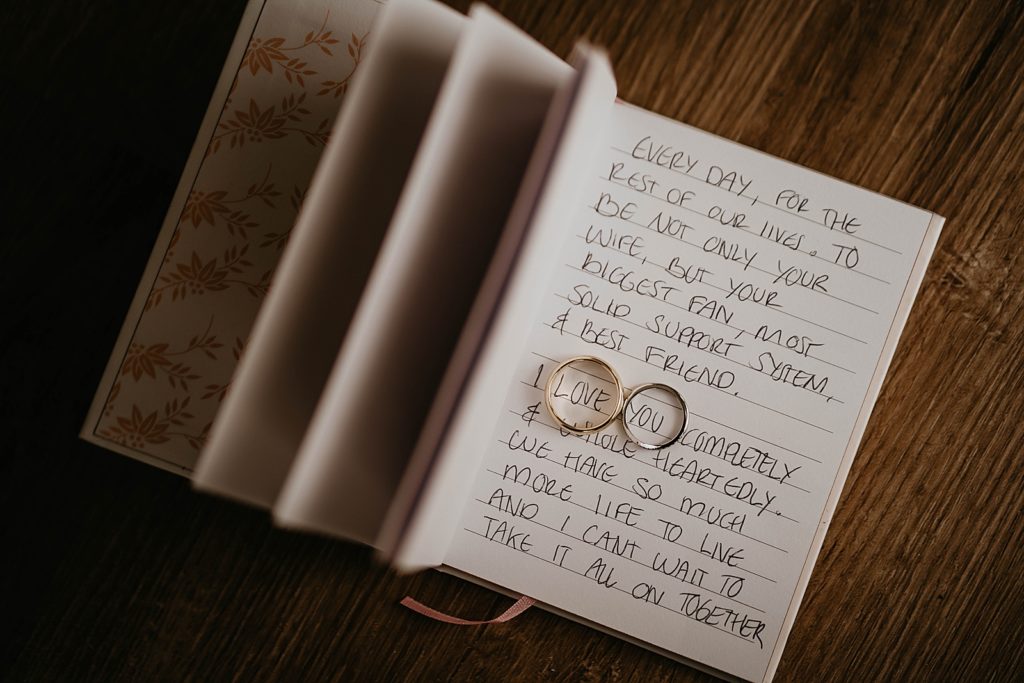 EVERY DAY, FOR THE
REST OF OUR LIVES. TO
BE NOT ONLY YOUR
WIFE, BUT YOUR
BIGGEST FAN, MOST
SOLID SUPPORT SYSTEM,
& BEST FRIEND.
I LOVE YOU COMPLETELY
& WHOLE HEARTEDLY.
WE HAVE SO MUCH
MORE LIFE TO LIVE
AND I CANT WAIT TO
TAKE IT ALL ON TOGETHER